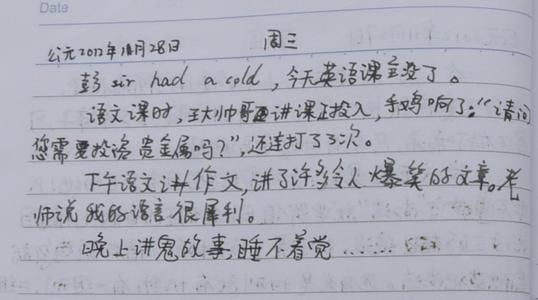 Date
公元2012年11月28日 周三
彭sir had a cold，今天英语课全没了。
语文课时，王大帅哥讲课正投入，手鸡响了："请问
您需要投资贵金属吗？"，还连打了3次。
下午语文讲作文，讲了许多令人爆笑的文章。老
师说我的语言很犀利。
晚上讲鬼故事，睡不着觉……